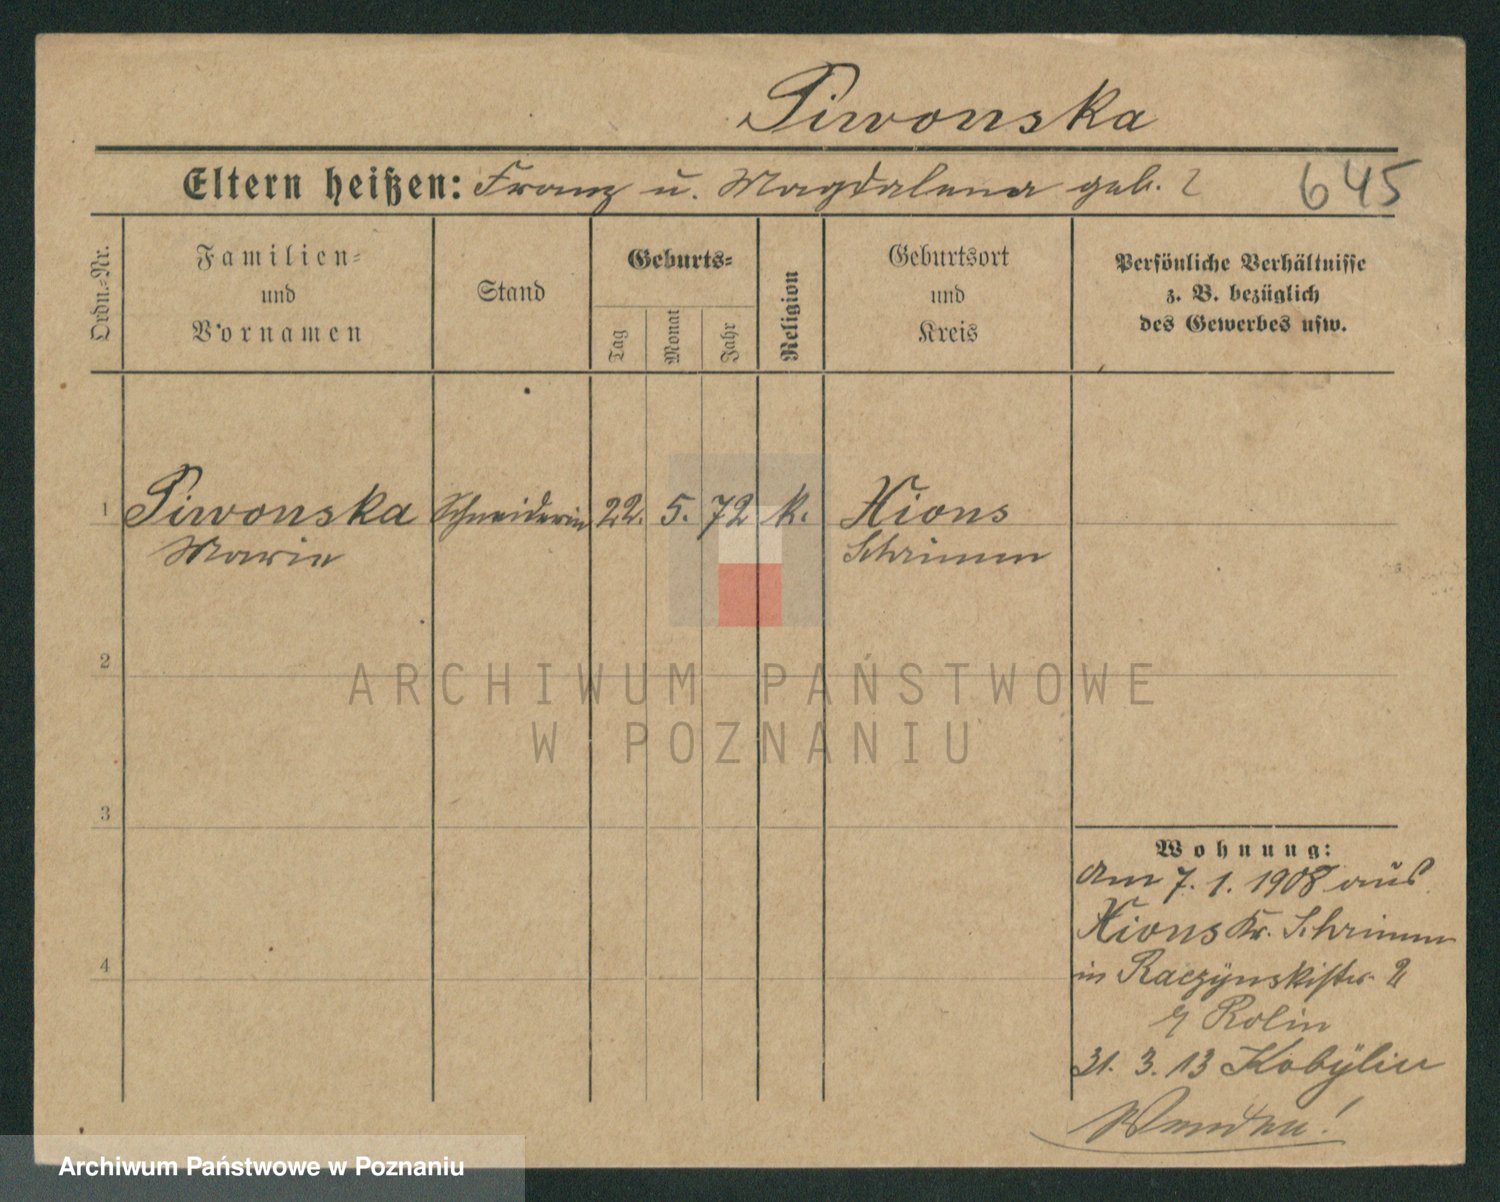 Piwonska
Eltern heißen: Franz u. Magdalena geb. ?
645
Ordn.-Nr.
Familien-
und
Vornamen
Stand
Geburts-
Tag
Monat
Jahr
Religion
Geburtsort
und
Kreis
Persönliche Verhältnisse
z. B. bezüglich
des Gewerbes usw.
1 Piwonska Schneiderin 22. 5. 72 k. Xions
Marie Schrimm
2
ARCHIWUM PAŃSTWOWE
W POZNANIU
3
Wohnung:
am 7. 1. 1908 aus
Xions Kr. Schrimm
4
in Raczynskistr.
Rolin
31. 3. 13 Kobylin
Wenden!
Archiwum Państwowe w Poznaniu